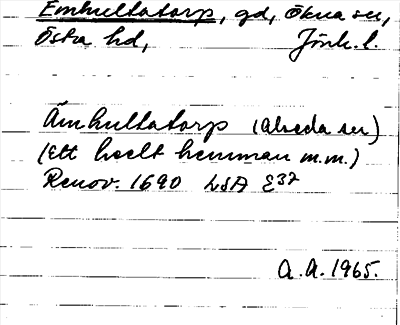 Emhultatorp, gd, Ökna sn,
Östra hd, Jönk. l.
Ämhultatorp (Alseda sn)
(Ett heelt hemman m.m.)
Renov. 1690 LSA E37
A.A. 1965.